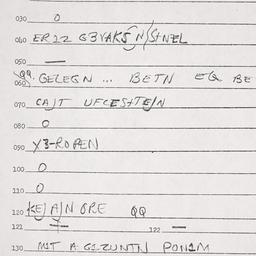 030 0
040 ER IZ GEVAKSN/STNEL
050 —
060 QQ. GELEGN ... BETN EQ BE
070 CAJT UFCESTEJN
080 0
090 YE-ROPEN
100 0
110 0
120 KEJAJNORE QQ
121 — 122 —
130 MIT A GEZUNTN PONIM